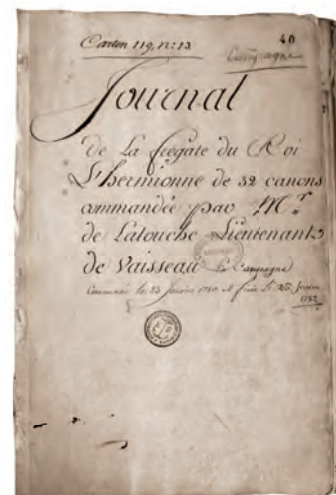 Carton 119, n:13
40
Campagne
Journal
de la fregate du Roi
L'hermionne de 32 canons
commandée par Mr.
de Latouche Lieutenant
de Vaisseau La Campagne
Commencé le 23 1780 et finie le 26
1782